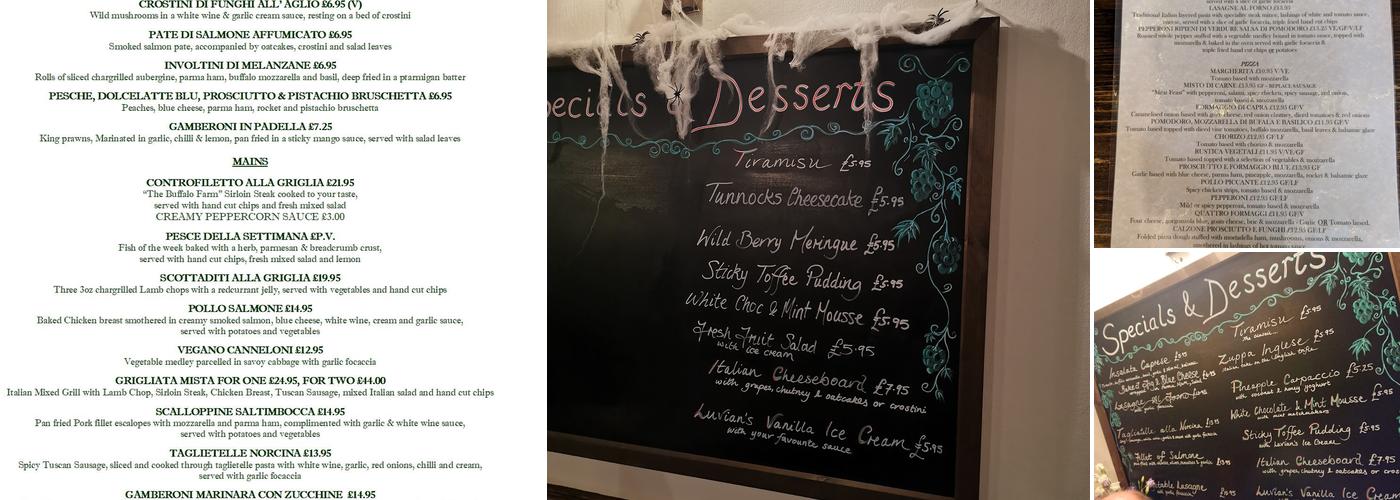 CROSTINI DI FUNGHI ALL' AGLIO £6.95 (V)
Wild mushrooms in a white wine & garlic cream sauce, resting on a bed of crostini
PATE DI SALMONE AFFUMICATO £6.95
Smoked salmon pate, accompanied by oatcakes, crostini and salad leaves
INVOLTINI DI MELANZANE £6.95
Rolls of sliced chargrilled aubergine, parma ham, buffalo mozzarella and basil, deep fried in a ptarmigan batter
PESCHE, DOLCELATTE BLU, PROSCIUTTO & PISTACHIO BRUSCHETTA £6.95
Peaches, blue cheese, parma ham, rocket and pistachio bruschetta
GAMBERONI IN PADELLA £7.25
King prawns, Marinated in garlic, chilli & lemon, pan fried in a sticky mango sauce, served with salad leaves
MAINS
CONTROFILETTO ALLA GRIGLIA £21.95
"The Buffalo Farm" Sirloin Steak cooked to your taste,
served with hand cut chips and fresh mixed salad
CREAMY PEPPERCORN SAUCE £3.00
PESCE DELLA SETTIMANA £P.V.
Fish of the week baked with a herb, parmesan & breadcrumb crust,
served with hand cut chips, fresh mixed salad and lemon
SCOTTADITI ALLA GRIGLIA £19.95
Three 3oz chargrilled Lamb chops with a redcurrant jelly, served with vegetables and hand cut chips
POLLO SALMONE £14.95
Baked Chicken breast smothered in creamy smoked salmon, blue cheese, white wine, cream and garlic sauce,
served with potatoes and vegetables
VEGANO CANNELONI £12.95
Vegetable medley parcelled in savoy cabbage with garlic focaccia
GRIGLIATA MISTA FOR ONE £24.95, FOR TWO £44.00
Italian Mixed Grill with Lamb Chop, Sirloin Steak, Chicken Breast, Tuscan Sausage, mixed Italian salad and hand cut chips
SCALLOPPINE SALTIMBOCCA £14.95
Pan fried Pork fillet escalopes with mozzarella and parma ham, complimented with garlic & white wine sauce,
served with potatoes and vegetables
TAGLIETELLE NORCINA £13.95
Spicy Tuscan Sausage, sliced and cooked through taglietelle pasta with white wine, garlic, red onions, chilli and cream,
served with garlic focaccia
GAMBERONI MARINARA CON ZUCCHINE £14.95
pecials & Desserts
Tiramisu £5.95
Tunnocks Cheesecake £5.95
Wild Berry Meringue £5.95
Sticky Toffee Pudding £5.95
White Choc & Mint Mousse £5.95
Fresh Fruit Salad £5.95
with ice cream
Italian Cheeseboard £7.95
with grapes, chutney & oatcakes or crostini
Luvian's Vanilla Ice Cream £5.95
with your favourite sauce
served with a slice of garlic focaccia
LASAGNE AL FORNO £13.95
Traditional Italian layered pasta with speciality steak mince, lashings of white and tomato sauce,
cheese, served with a slice of garlic focaccia, triple fried hand cut chips
PEPPERONI RIPIENI DI VERDURE SALSA DI POMODORO £13.25 VE/GF/V/LF
Roasted whole pepper stuffed with a vegetable medley bound in tomato sauce, topped with
mozzarella & baked in the oven served with garlic focaccia &
triple fried hand cut chips or potatoes
PIZZA
MARGHERITA £10.95 V/VE
Tomato based with mozzarella
MISTO DI CARNE £13.95 GF - REPLACE SAUSAGE
"Meat Feast" with pepperoni, salami, spicy chicken, spicy sausage, red onions,
tomato based & mozzarella
FORMAGGIO DI CAPRA £12.95 GF/V
Caramelised onion based with goats cheese, red onion chutney, diced tomatoes & red onions
POMODORO, MOZZARELLA DI BUFALA E BASILICO £11.95 GF/V
Tomato based topped with diced vine tomatoes, buffalo mozzarella, basil leaves & balsamic glaze
CHORIZO £12.95 GF/LF
Tomato based with chorizo & mozzarella
RUSTICA VEGETALI £11.95 V/VE/GF
Tomato based topped with a selection of vegetables & mozzarella
PROSCIUTTO E FORMAGGIO BLUE £13.95 GF
Garlic based with blue cheese, parma ham, pineapple, mozzarella, rocket & balsamic glaze
POLLO PICCANTE £12.95 GF/LF
Spicy chicken strips, tomato based & mozzarella
PEPPERONI £12.95 GF/LF
Mild or spicy pepperoni, tomato based & mozzarella
QUATTRO FORMAGGI £11.95 GF/V
Four cheese, gorgonzola blue, goats cheese, brie & mozzarella - Garlic OR Tomato based.
CALZONE PROSCIUTTO E FUNGHI £12.95 GF/LF
Folded pizza dough stuffed with mortadella ham, mushrooms, onions & mozzarella,
smothered in lashings of hot tomato sauce
Specials & Desserts
Tiramisu £5.95
Zuppa Inglese £5.95
Pineapple Carpaccio £5.25
with coconut & honey yoghurt
White Chocolate & Mint Mousse £5.95
with mint matchmakers
Sticky Toffee Pudding £5.95
with Luvian's Ice Cream
Italian Cheeseboard £7.95
with grapes, chutney & oatcakes or cros
Luvian's Vanilla Ice C
Insalata Caprese
Baked Egg & Blue Cheese
Lasagne Al Forno
Tagliatelle alla Norcina
Fillet of Salmone
table Lasagne